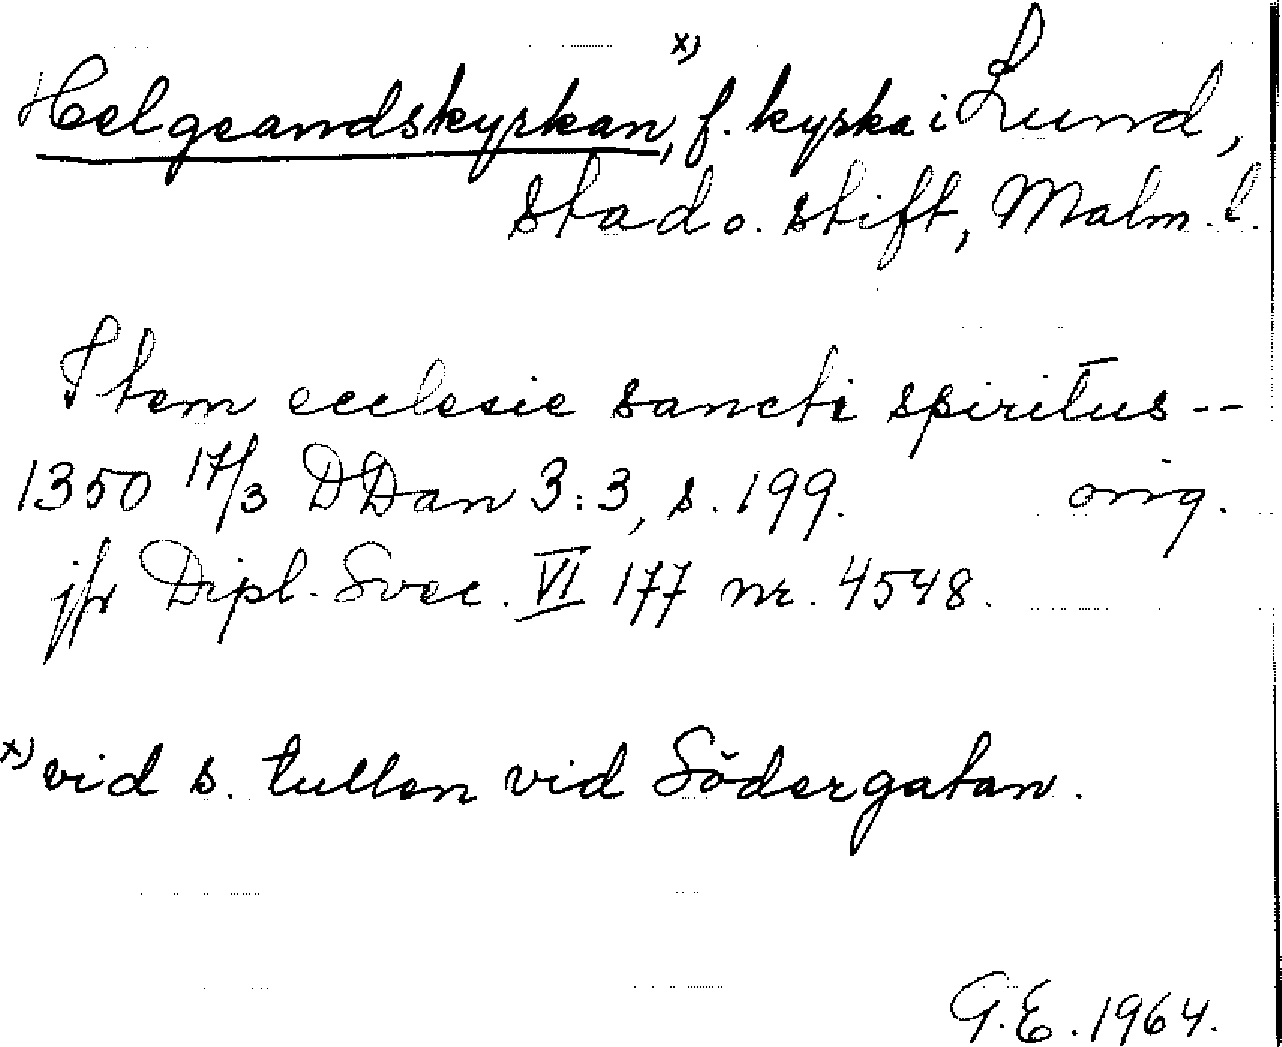 Helgeandskyrkan,ˣ⁾ f. kyrka i Lund,
stad o. stift, Malm. l.
Item ecclesie sancti spiritus --
1350 17/3 DDan 3:3, s. 199. orig.
jfr Dipl. Svec. VI 177 nr. 4548.
ˣ⁾ vid s. tullen vid Södergatan.
G.E. 1964.